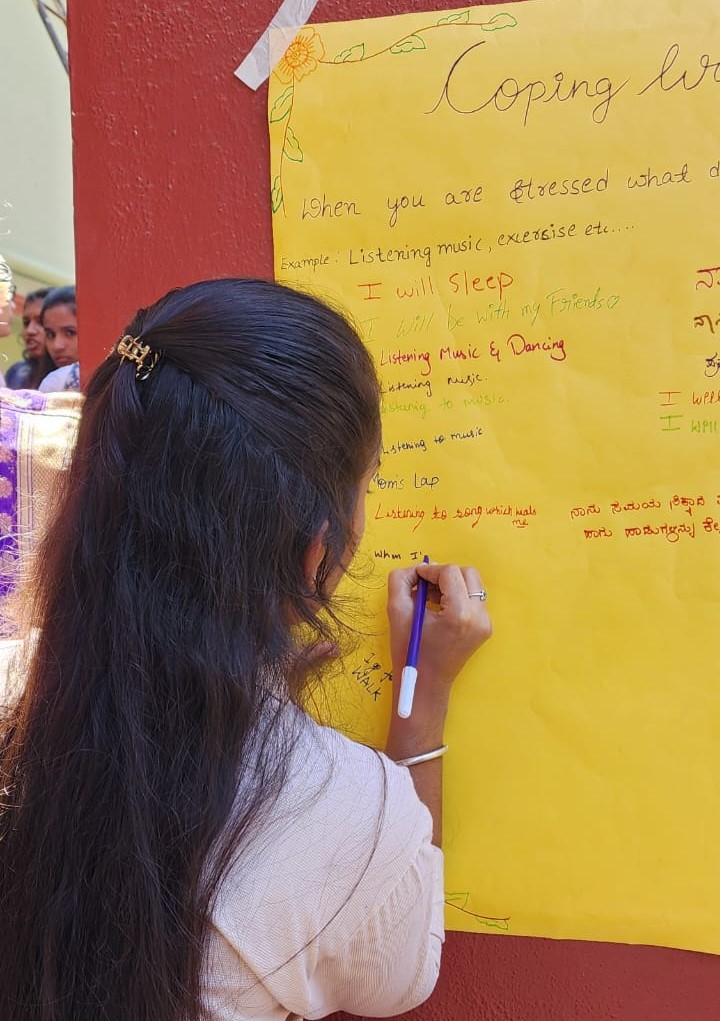 Coping
When you are stressed what
Example: Listening music, excersise etc....
I will Sleep
I will be with my Friends♡
Listening Music & Dancing
Listening music.
Listening to music.
Listening to music
Mom's Lap
Listening to song which heals
me
When I'
I go to
WALK
I will
I will
ನಾನು ಸಮಯ
ಹಾಗು ಹಾಡುಗಳನ್ನು